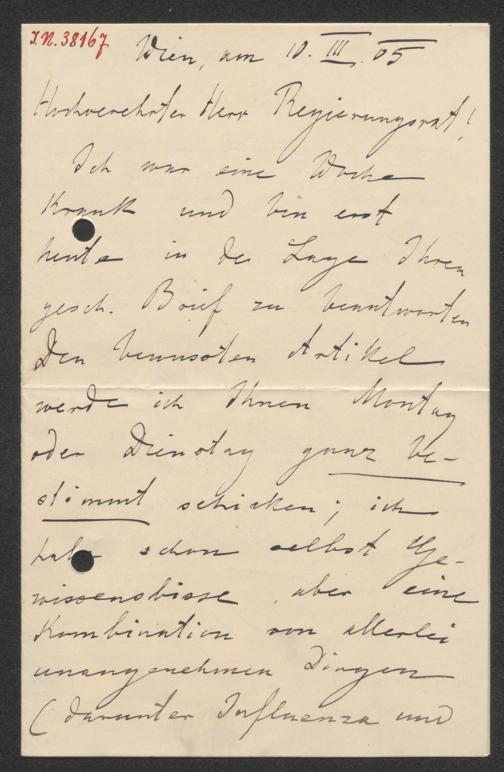 I.N. 38167
Wien, am 10. III. 05
Hochverehrter Herr Regierungsrat!
Ich war eine Woche
Krank und bin erst
heute in der Lage Ihren
gesch. Brief zu beantworten
Den bewussten Artikel
werde ich Ihnen Montag
oder Dienstag ganz be-
stimmt schicken; ich
habe schon selbst Ge-
wissensbisse, aber eine
Kombination von allerlei
unangenehmen Dingen
(darunter Influenza und